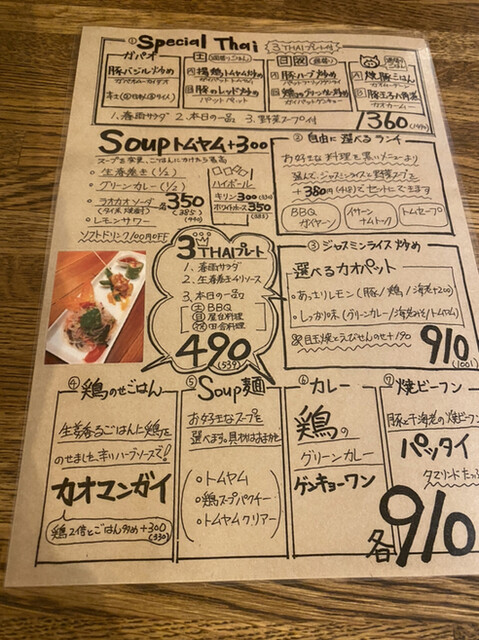 ① Special Thai
3 THAIプレート付
ガパオ
豚バジル炒め
土
A 揚鶏トムヤム炒め
B 豚のレッド炒め
日 祝
A 豚ハーブ炒め
B 鶏のグリーンカレー炒め
A 焼豚ごはん
1. 春雨サラダ 2. 本日の一品 3. 野菜スープ付
1360
Soup トムヤム+300
○ 生春巻き(1/2)
○ グリーンカレー(1/2)
○ ラオカオソーダ
(タイ米焼酎)
○ レモンサワー
350
(385)
ソフトドリンク100円OFF
ハイボール
キリン 300
ホワイトホース 350
(385)
② 自由に選べるランチ
お好きな料理を単いメニューより
選んで、ジャスミンライスと野菜スープを
+380円(418)でセットにできます
BBQ
ガイヤーン
イサーン
ナムトック
トムセープ
3 THAIプレート
1. 春雨サラダ
2. 生春巻きチリソース
3. 本日の一品
土 BBQ
日 屋台料理
祝 田舎料理
490
(539)
③ ジャスミンライス炒め
選べるカオパット
○ あっさりレモン(豚/鶏/海老+200)
○ しっかり味(グリーンカレー/海老みそ/トムヤム)
目玉焼とえびせんのせ+190
910
(1001)
④ 鶏のせごはん
生姜香るごはんに鶏を
のせました、辛いハーブソースで!
カオマンガイ
鶏2倍とごはん炒め+300
(330)
⑤ Soup麺
お好きなスープを
選べます。具材はおまかせ
○ トムヤム
○ 鶏スープパクチー
○ トムヤムクリアー
⑥ カレー
鶏の
グリーンカレー
ゲンキョーワン
⑦ 焼ビーフン
豚と干海老の焼ビーフン
パッタイ
タマリンドたっぷ
各910